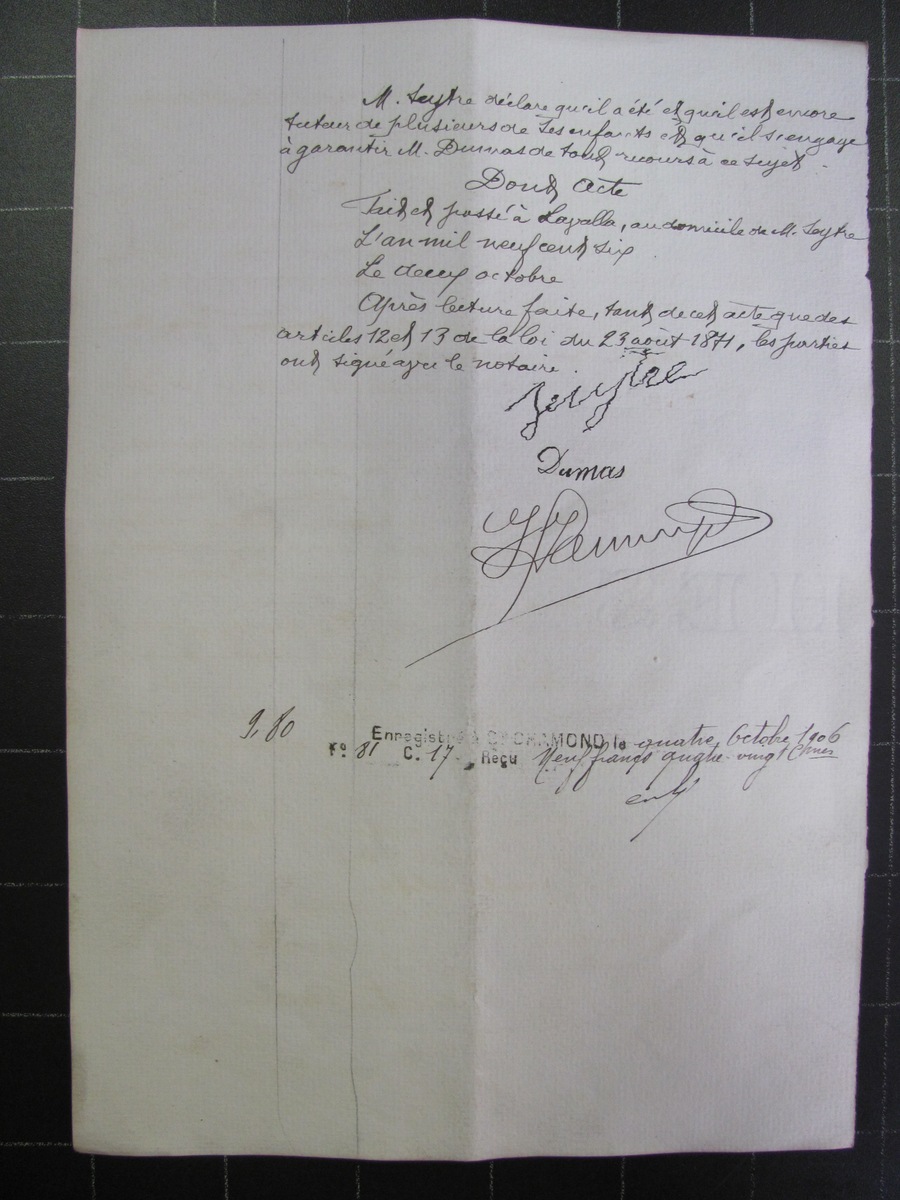 M. Seytre déclare qu'il a été et qu'il est encore
tuteur de plusieurs de ses enfants et qu'il s'engage
à garantir M. Dumas de tout recours à ce sujet.
Dont acte
Fait et passé à Lavalla, au domicile de M. Seytre
L'an mil neuf cent six
Le deux octobre
Après lecture faite, tant de cet acte que des
articles 12 et 13 de la loi du 23 août 1871, les parties
ont signé avec le notaire.
Seytre
Dumas
9,80
Enregistré à St CHAMOND, le quatre Octobre 1906
Fo 81 C. 17 Reçu Neuf francs quatre-vingt Cmes